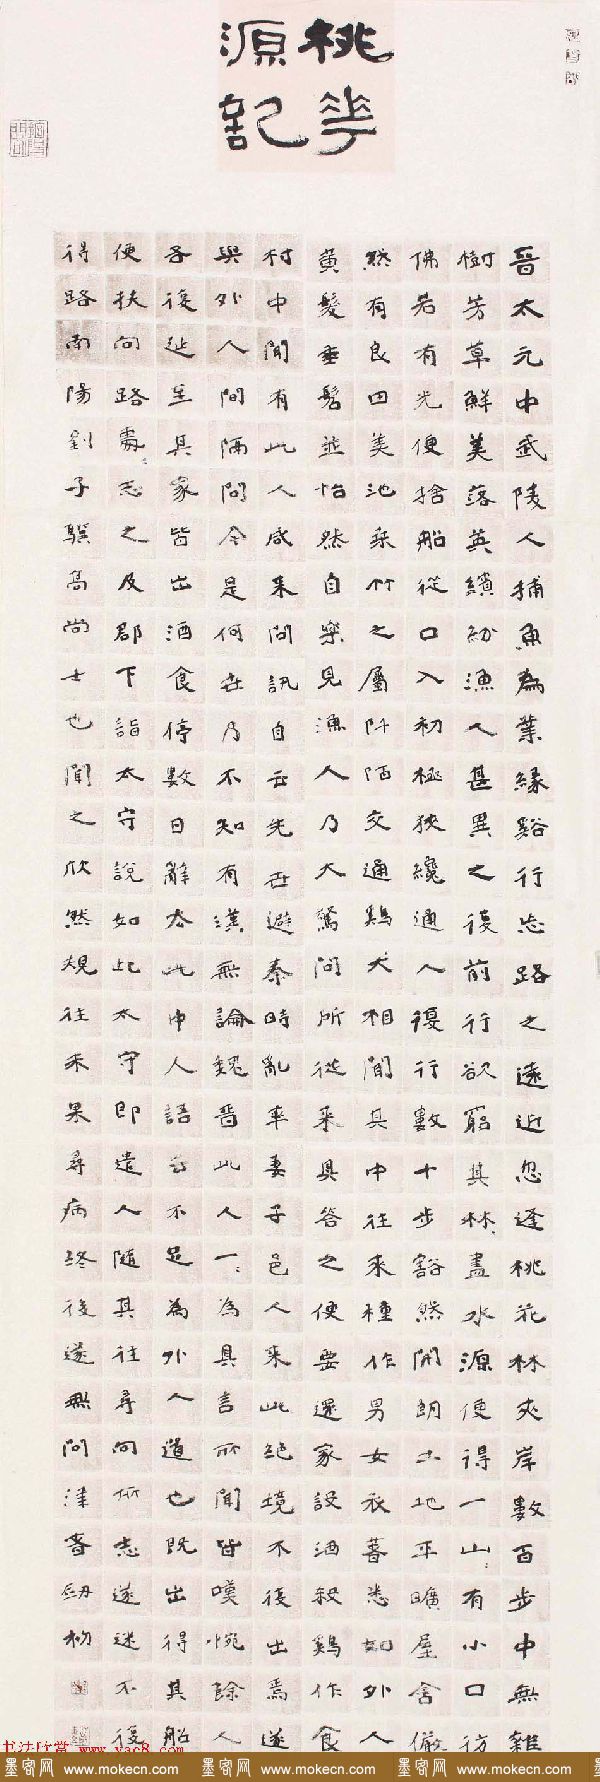 桃花
源記
晉太元中武陵人捕魚為業緣谿行忘路之遠近忽逢桃花林夾岸數百步中無雜
樹芳草鮮美落英繽紛漁人甚異之復前行欲窮其林〻盡水源便得一山〻有小口彷
佛若有光便捨船從口入初極狹纔通人復行數十步豁然開朗土地平曠屋舍儼
然有良田美池桑竹之屬阡陌交通雞犬相聞其中往來種作男女衣著悉如外人
黃髮垂髫並怡然自樂見漁人乃大驚問所從來具答之便要還家設酒殺雞作食
村中聞有此人咸來問訊自云先世避秦時亂率妻子邑人來此絕境不復出焉遂
與外人間隔問今是何世乃不知有漢無論魏晉此人一〻為具言所聞皆嘆惋餘人
各復延至其家皆出酒食停數日辭去此中人語云不足為外人道也既出得其船
便扶向路處〻志之及郡下詣太守說如此太守即遣人隨其往尋向所志遂迷不復
得路南陽劉子驥高尚士也聞之欣然規往未果尋病終後遂無問津者
书法欣赏 www.yac8.com
墨客网 www.mokecn.com 墨客网 www.mokecn.com 墨客网 www.mokecn.com